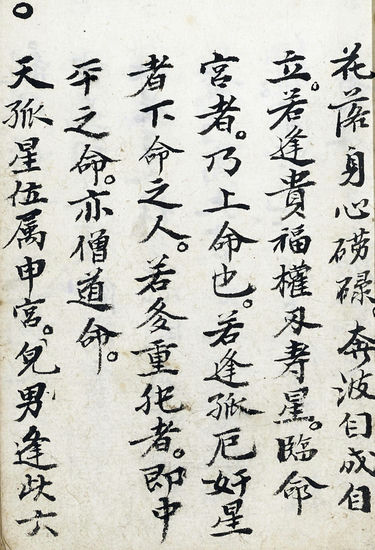 花落身心磱碌。奔波自成自
立。若逢貴福權刃寿星。臨命
宮者。乃上命也。若逢孤厄奸星
者下命之人。若多重犯者。即中
平之命。亦僧道命。
天孤星位属申宮。兒男逢此六